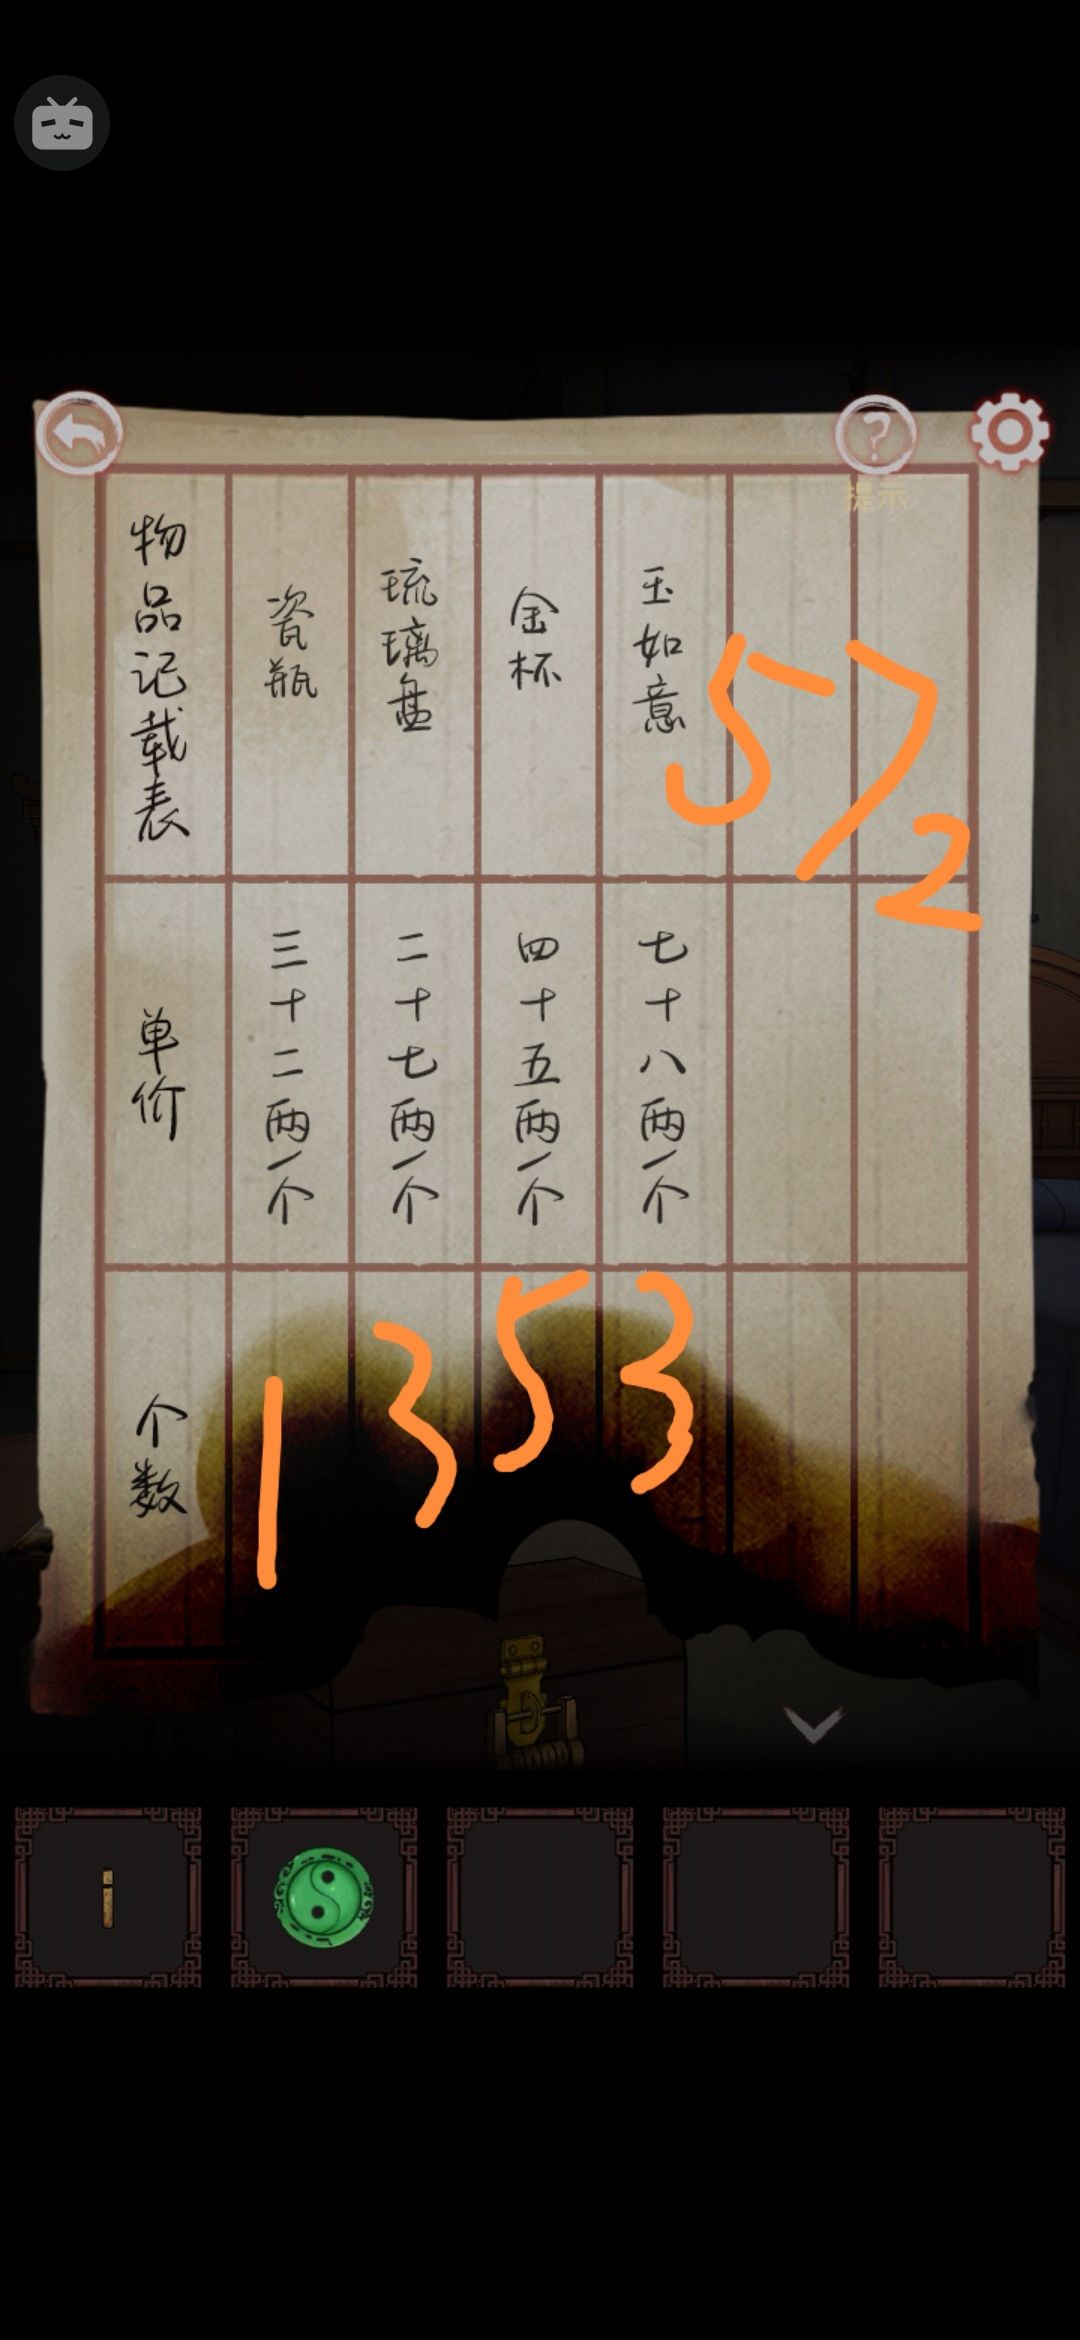 提示
物品记载表
瓷瓶
琉璃盘
金杯
玉如意
572
单价
三十二两一个
二十七两一个
四十五两一个
七十八两一个
个数
1
3
5
3